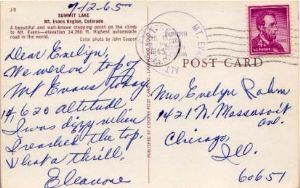 9-12-65
SUMMIT LAKE
Mt. Evans Region, Colorado
A beautiful and well-known stopping point on the climb
to Mt. Evans—elevation 14,260 ft. Highest automobile
road in the world.
Color photo by John Cooper
Dear Evelyn,
We were on top of
Mt Evans today
14,630 altitude.
I was dizzy when
I reached the top.
What a thrill.
Eleanore
POST CARD
Mrs. Evelyn Rahm
1421 N. Massasoit
ave.
Chicago,
Ill.
60651